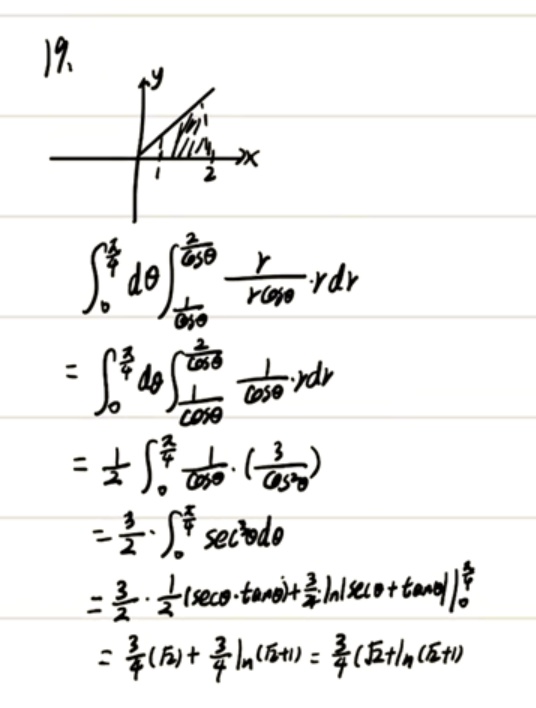 19.
y
x
1 2
∫_0^{π/4} dθ ∫_{1/cosθ}^{2/cosθ} r/(r cosθ) · r dr
= ∫_0^{π/4} dθ ∫_{1/cosθ}^{2/cosθ} 1/cosθ · r dr
= 1/2 ∫_0^{π/4} 1/cosθ · (3/cos²θ)
= 3/2 · ∫_0^{π/4} sec³θ dθ
= 3/2 · 1/2 (secθ · tanθ) + 3/4 · ln|secθ + tanθ| |_0^{π/4}
= 3/4 (√2) + 3/4 ln(√2+1) = 3/4 (√2 + ln(√2+1)